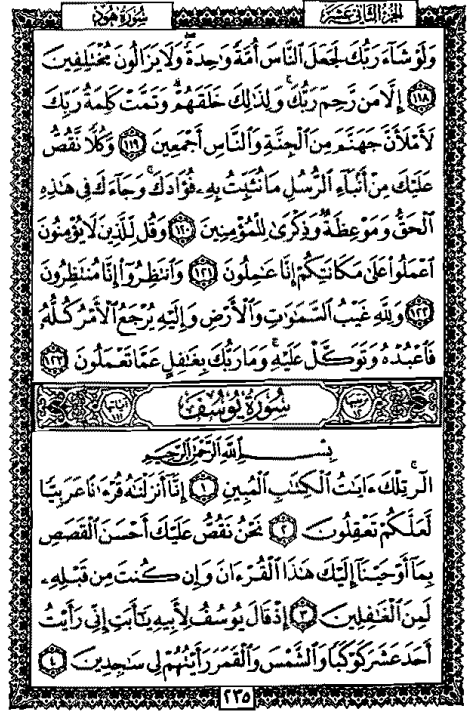 سُورَةُ هُودٍ
الجزء الثاني عشر
وَلَوْ شَآءَ رَبُّكَ لَجَعَلَ ٱلنَّاسَ أُمَّةً وَٰحِدَةً ۖ وَلَا يَزَالُونَ مُخْتَلِفِينَ
١١٨ إِلَّا مَن رَّحِمَ رَبُّكَ ۚ وَلِذَٰلِكَ خَلَقَهُمْ ۗ وَتَمَّتْ كَلِمَةُ رَبِّكَ
لَأَمْلَأَنَّ جَهَنَّمَ مِنَ ٱلْجِنَّةِ وَٱلنَّاسِ أَجْمَعِينَ ١١٩ وَكُلًّا نَّقُصُّ
عَلَيْكَ مِنْ أَنۢبَآءِ ٱلرُّسُلِ مَا نُثَبِّتُ بِهِۦ فُؤَادَكَ ۚ وَجَآءَكَ فِى هَٰذِهِ
ٱلْحَقُّ وَمَوْعِظَةٌ وَذِكْرَىٰ لِلْمُؤْمِنِينَ ١٢٠ وَقُل لِّلَّذِينَ لَا يُؤْمِنُونَ
ٱعْمَلُوا۟ عَلَىٰ مَكَانَتِكُمْ إِنَّا عَٰمِلُونَ ١٢١ وَٱنتَظِرُوٓا۟ إِنَّا مُنتَظِرُونَ
١٢٢ وَلِلَّهِ غَيْبُ ٱلسَّمَٰوَٰتِ وَٱلْأَرْضِ وَإِلَيْهِ يُرْجَعُ ٱلْأَمْرُ كُلُّهُۥ
فَٱعْبُدْهُ وَتَوَكَّلْ عَلَيْهِ ۚ وَمَا رَبُّكَ بِغَٰفِلٍ عَمَّا تَعْمَلُونَ ١٢٣
سُورَةُ يُوسُفَ
بِسْمِ ٱللَّهِ ٱلرَّحْمَٰنِ ٱلرَّحِيمِ
الٓر ۚ تِلْكَ ءَايَٰتُ ٱلْكِتَٰبِ ٱلْمُبِينِ ١ إِنَّآ أَنزَلْنَٰهُ قُرْءَٰنًا عَرَبِيًّا
لَّعَلَّكُمْ تَعْقِلُونَ ٢ نَحْنُ نَقُصُّ عَلَيْكَ أَحْسَنَ ٱلْقَصَصِ
بِمَآ أَوْحَيْنَآ إِلَيْكَ هَٰذَا ٱلْقُرْءَانَ وَإِن كُنتَ مِن قَبْلِهِۦ
لَمِنَ ٱلْغَٰفِلِينَ ٣ إِذْ قَالَ يُوسُفُ لِأَبِيهِ يَٰٓأَبَتِ إِنِّى رَأَيْتُ
أَحَدَ عَشَرَ كَوْكَبًا وَٱلشَّمْسَ وَٱلْقَمَرَ رَأَيْتُهُمْ لِى سَٰجِدِينَ ٤
٢٣٥